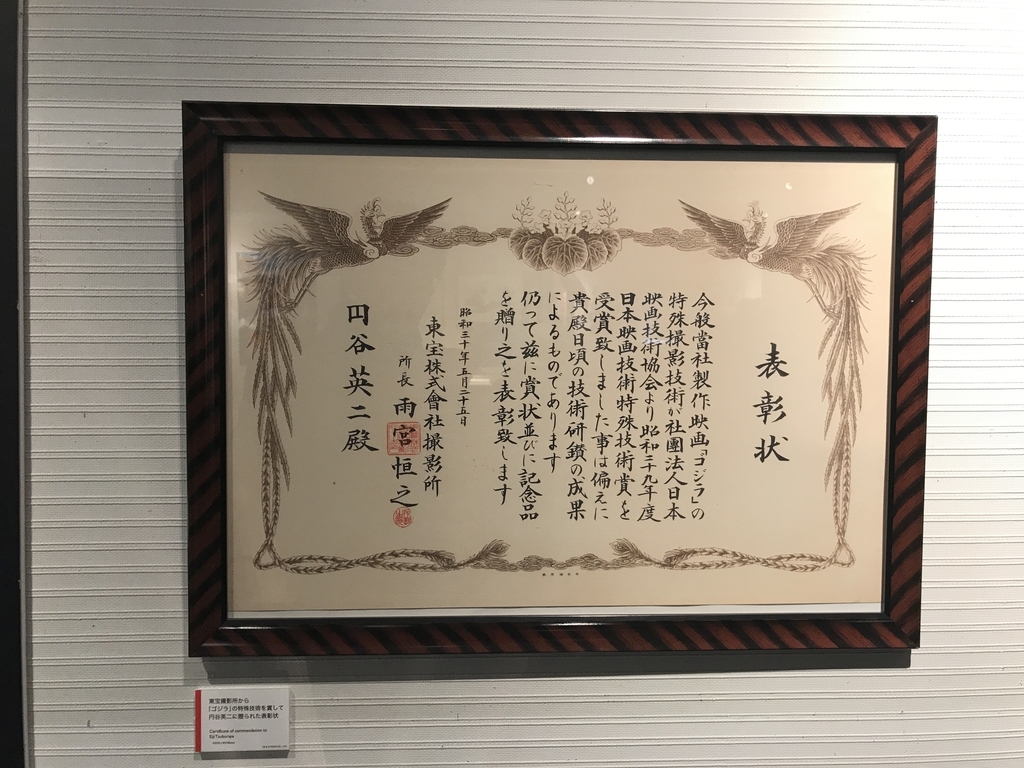 表彰状
今般當社製作映画『ゴジラ』の
特殊撮影技術が社團法人日本
映画技術協会より昭和二十九年度
日本映画技術特殊技術賞を
受賞致しました事は偏えに
貴殿日頃の技術研鑽の成果
によるものであります
仍って茲に賞状並びに記念品
を贈り之を表彰致します
昭和三十年五月二十五日
東宝株式會社撮影所
所長 雨宮恒之
円谷英二殿
東宝撮影所から
「ゴジラ」の特殊技術を賞して
円谷英二に贈られた表彰状
Certificate of commendation to
Eiji Tsuburaya